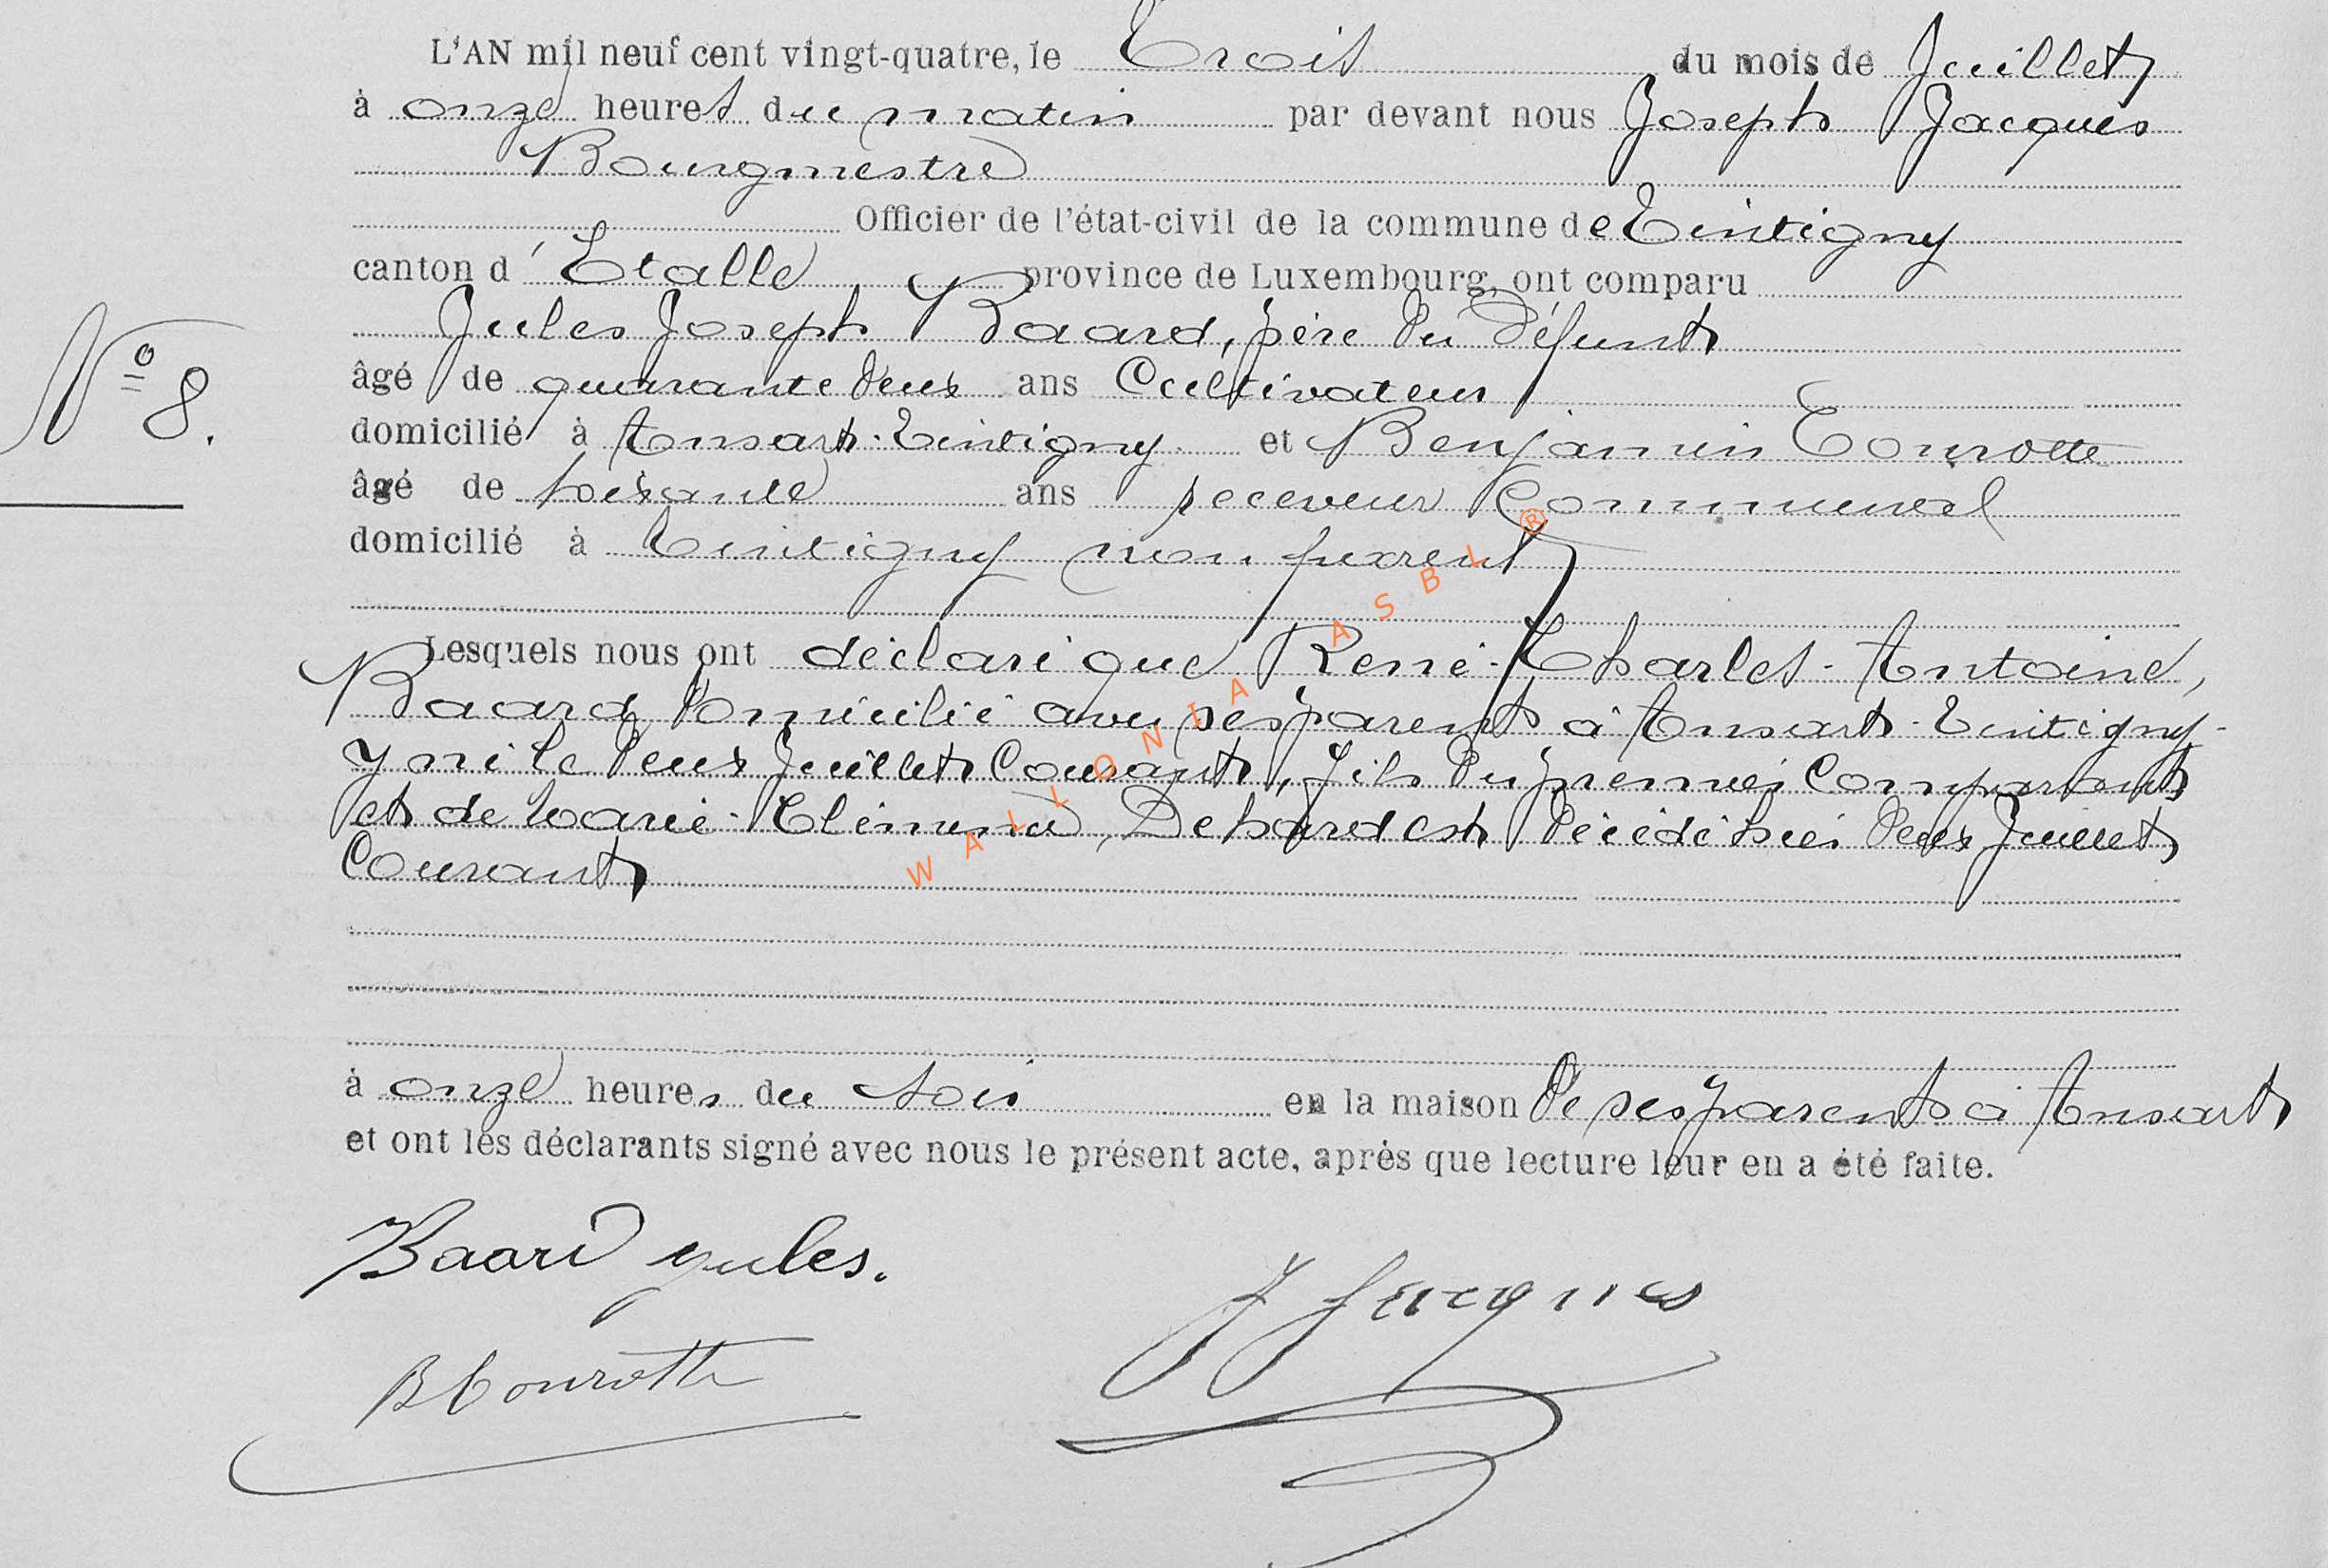 L'AN mil neuf cent vingt-quatre, le Trois du mois de Juillet
à onze heures du matin par devant nous Joseph Jacques
Bourgmestre
Officier de l'état-civil de la commune de Tintigny
canton d'Etalle province de Luxembourg, ont comparu
Jules Joseph Baard, père du défunt
N° 8.
âgé de quarante deux ans Cultivateur
domicilié à Ansart-Tintigny et Benjamin Tourotte
âgé de soixante ans receveur Communal
domicilié à Tintigny non parent
Lesquels nous ont déclaré que René-Charles-Antoine,
Baard domicilié avec ses parents à Ansart-Tintigny-
y né le deux Juillet Courant, fils du premier Comparant
et de Marie-Clémence, Dehard est décédé hier deux Juillet
Courant
à onze heures du soir en la maison de ses parents à Ansart
et ont les déclarants signé avec nous le présent acte, après que lecture leur en a été faite.
Baard Jules.
J Jacques
B Tourotte
WALLONIA ASBL ®